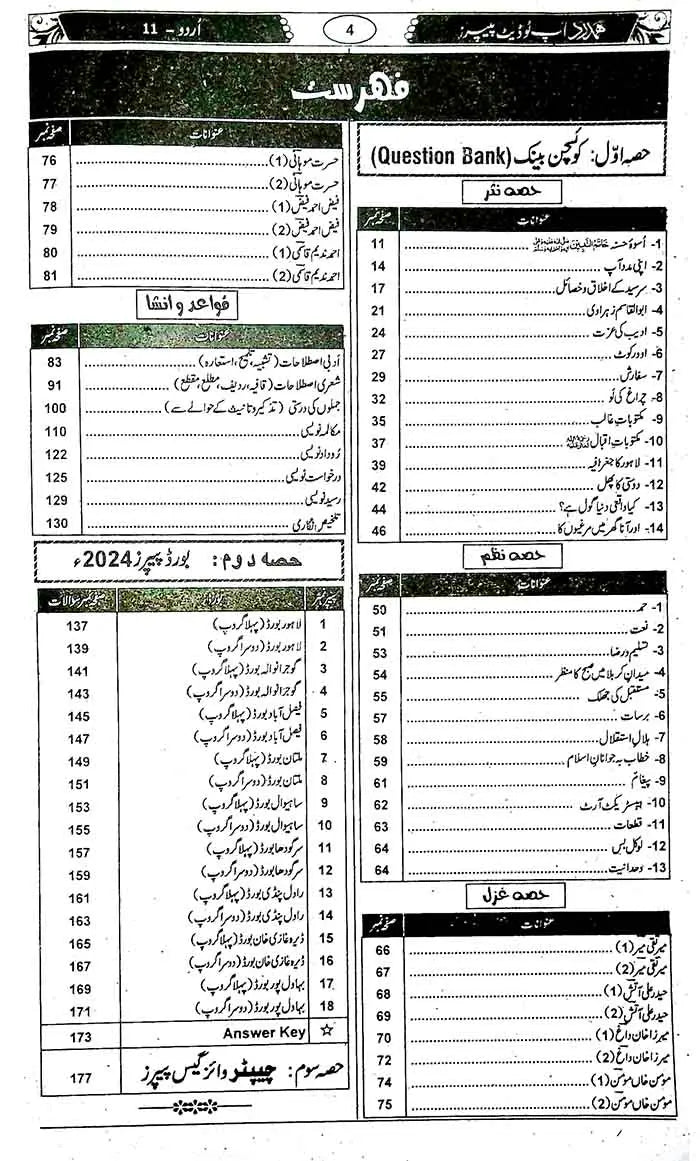 ہمدرد اَپ ٹوڈیٹ پیپرز
4
اُردو - 11
فہرست
حصہ اوّل: کوئسچن بینک (Question Bank)
حصہ نثر
عنوانات صفحہ نمبر
1- اُسوۂ حسنہ خاتم النبیین صلی اللہ علیہ وسلم 11
2- اپنی مدد آپ 14
3- سرسید کے اخلاق و خصائل 17
4- ابوالقاسم زہراوی 21
5- ادیب کی عزت 24
6- اوورکوٹ 27
7- سفارش 29
8- چراغ کی لَو 32
9- مکتوباتِ غالب 35
10- مکتوباتِ اقبال 37
11- لاہور کا جغرافیہ 39
12- دوستی کا پھل 42
13- کیا واقعی دنیا گول ہے؟ 44
14- اور آنا گھر میں مرغیوں کا 46
حصہ نظم
عنوانات صفحہ نمبر
1- حمد 50
2- نعت 51
3- تسلیم و رضا 53
4- میدانِ کربلا میں صبح کا منظر 54
5- مستقبل کی جھلک 55
6- برسات 57
7- ہلالِ استقلال 58
8- خطاب بہ جوانانِ اسلام 59
9- پیغام 61
10- ایبسٹریکٹ آرٹ 62
11- قطعات 63
12- لوکل بس 64
13- وحدانیت 64
حصہ غزل
عنوانات صفحہ نمبر
میر تقی میرؔ (1) 66
میر تقی میرؔ (2) 67
حیدر علی آتشؔ (1) 68
حیدر علی آتشؔ (2) 69
میرزا خان داغؔ (1) 70
میرزا خان داغؔ (2) 72
مومن خاں مومنؔ (1) 74
مومن خاں مومنؔ (2) 75
عنوانات صفحہ نمبر
حسرت موہانی (1) 76
حسرت موہانی (2) 77
فیض احمد فیضؔ (1) 78
فیض احمد فیضؔ (2) 79
احمد ندیم قاسمی (1) 80
احمد ندیم قاسمی (2) 81
قواعد و انشا
عنوانات صفحہ نمبر
اَدبی اصطلاحات (تشبیہ، تلمیح، استعارہ) 83
شعری اصطلاحات (قافیہ، ردیف، مطلع، مقطع) 91
جملوں کی درستی (تذکیر و تانیث کے حوالے سے) 100
مکالمہ نویسی 110
رُوداد نویسی 122
درخواست نویسی 125
رسید نویسی 129
تلخیص نگاری 130
حصہ دوم: بورڈ پیپرز 2024ء
پیپر نمبر بورڈ صفحہ نمبر سوالات
1 لاہور بورڈ (پہلا گروپ) 137
2 لاہور بورڈ (دوسرا گروپ) 139
3 گوجرانوالہ بورڈ (پہلا گروپ) 141
4 گوجرانوالہ بورڈ (دوسرا گروپ) 143
5 فیصل آباد بورڈ (پہلا گروپ) 145
6 فیصل آباد بورڈ (دوسرا گروپ) 147
7 ملتان بورڈ (پہلا گروپ) 149
8 ملتان بورڈ (دوسرا گروپ) 151
9 ساہیوال بورڈ (پہلا گروپ) 153
10 ساہیوال بورڈ (دوسرا گروپ) 155
11 سرگودھا بورڈ (پہلا گروپ) 157
12 سرگودھا بورڈ (دوسرا گروپ) 159
13 راولپنڈی بورڈ (پہلا گروپ) 161
14 راولپنڈی بورڈ (دوسرا گروپ) 163
15 ڈیرہ غازی خان بورڈ (پہلا گروپ) 165
16 ڈیرہ غازی خان بورڈ (دوسرا گروپ) 167
17 بہاول پور بورڈ (پہلا گروپ) 169
18 بہاول پور بورڈ (دوسرا گروپ) 171
☆ Answer Key 173
حصہ سوم: چیپٹر وائز گیس پیپرز 177